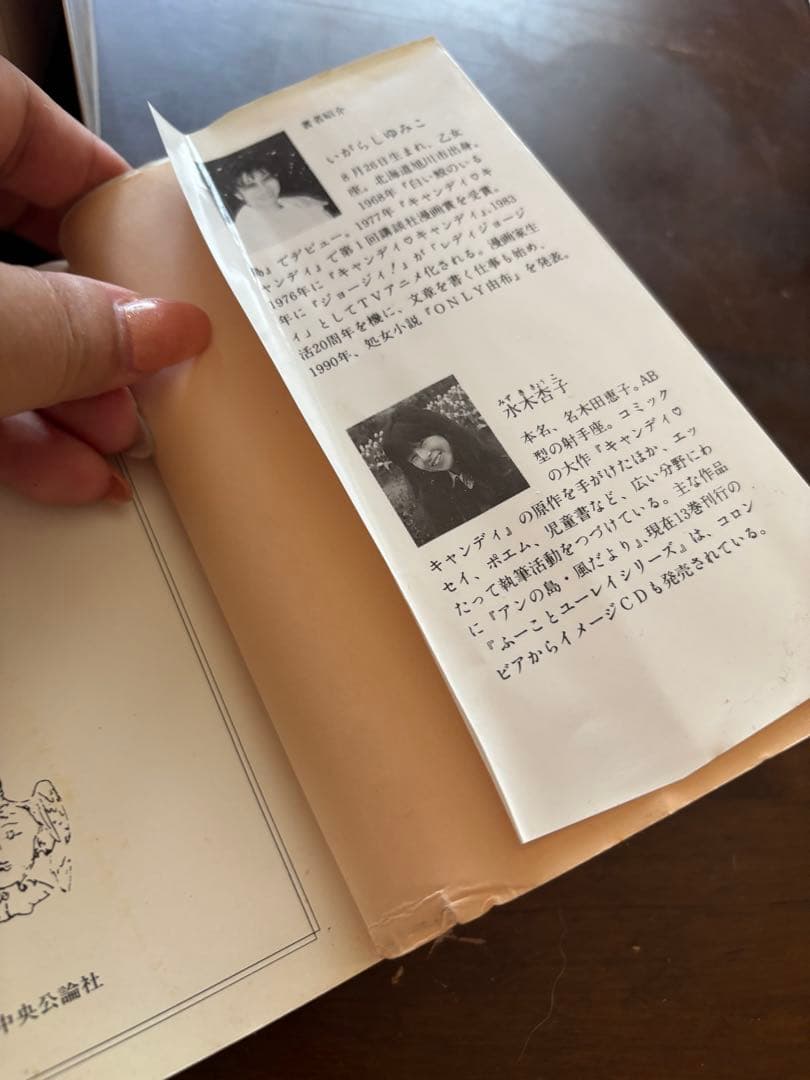 著者紹介
いがらしゆみこ
8月26日生まれ、乙女
座。北海道旭川市出身。
1968年『白い鮫のいる
島』でデビュー。1977年『キャンディ♡キ
ャンディ』で第1回講談社漫画賞を受賞。
1976年に『キャンディ♡キャンディ』、1983
年に『ジョージィ!』が『レディジョージ
ィ』としてTVアニメ化される。漫画家生
活20周年を機に、文章を書く仕事も始め、
1990年、処女小説『ONLY由布』を発表。
みずききょうこ
水木杏子
本名、名木田恵子。AB
型の射手座。コミック
の大作『キャンディ♡
キャンディ』の原作を手がけたほか、エッ
セイ、ポエム、児童書など、広い分野にわ
たって執筆活動をつづけている。主な作品
に『アンの島・風だより』、現在13巻刊行の
『ふーことユーレイシリーズ』は、コロン
ビアからイメージCDも発売されている。
中央公論社